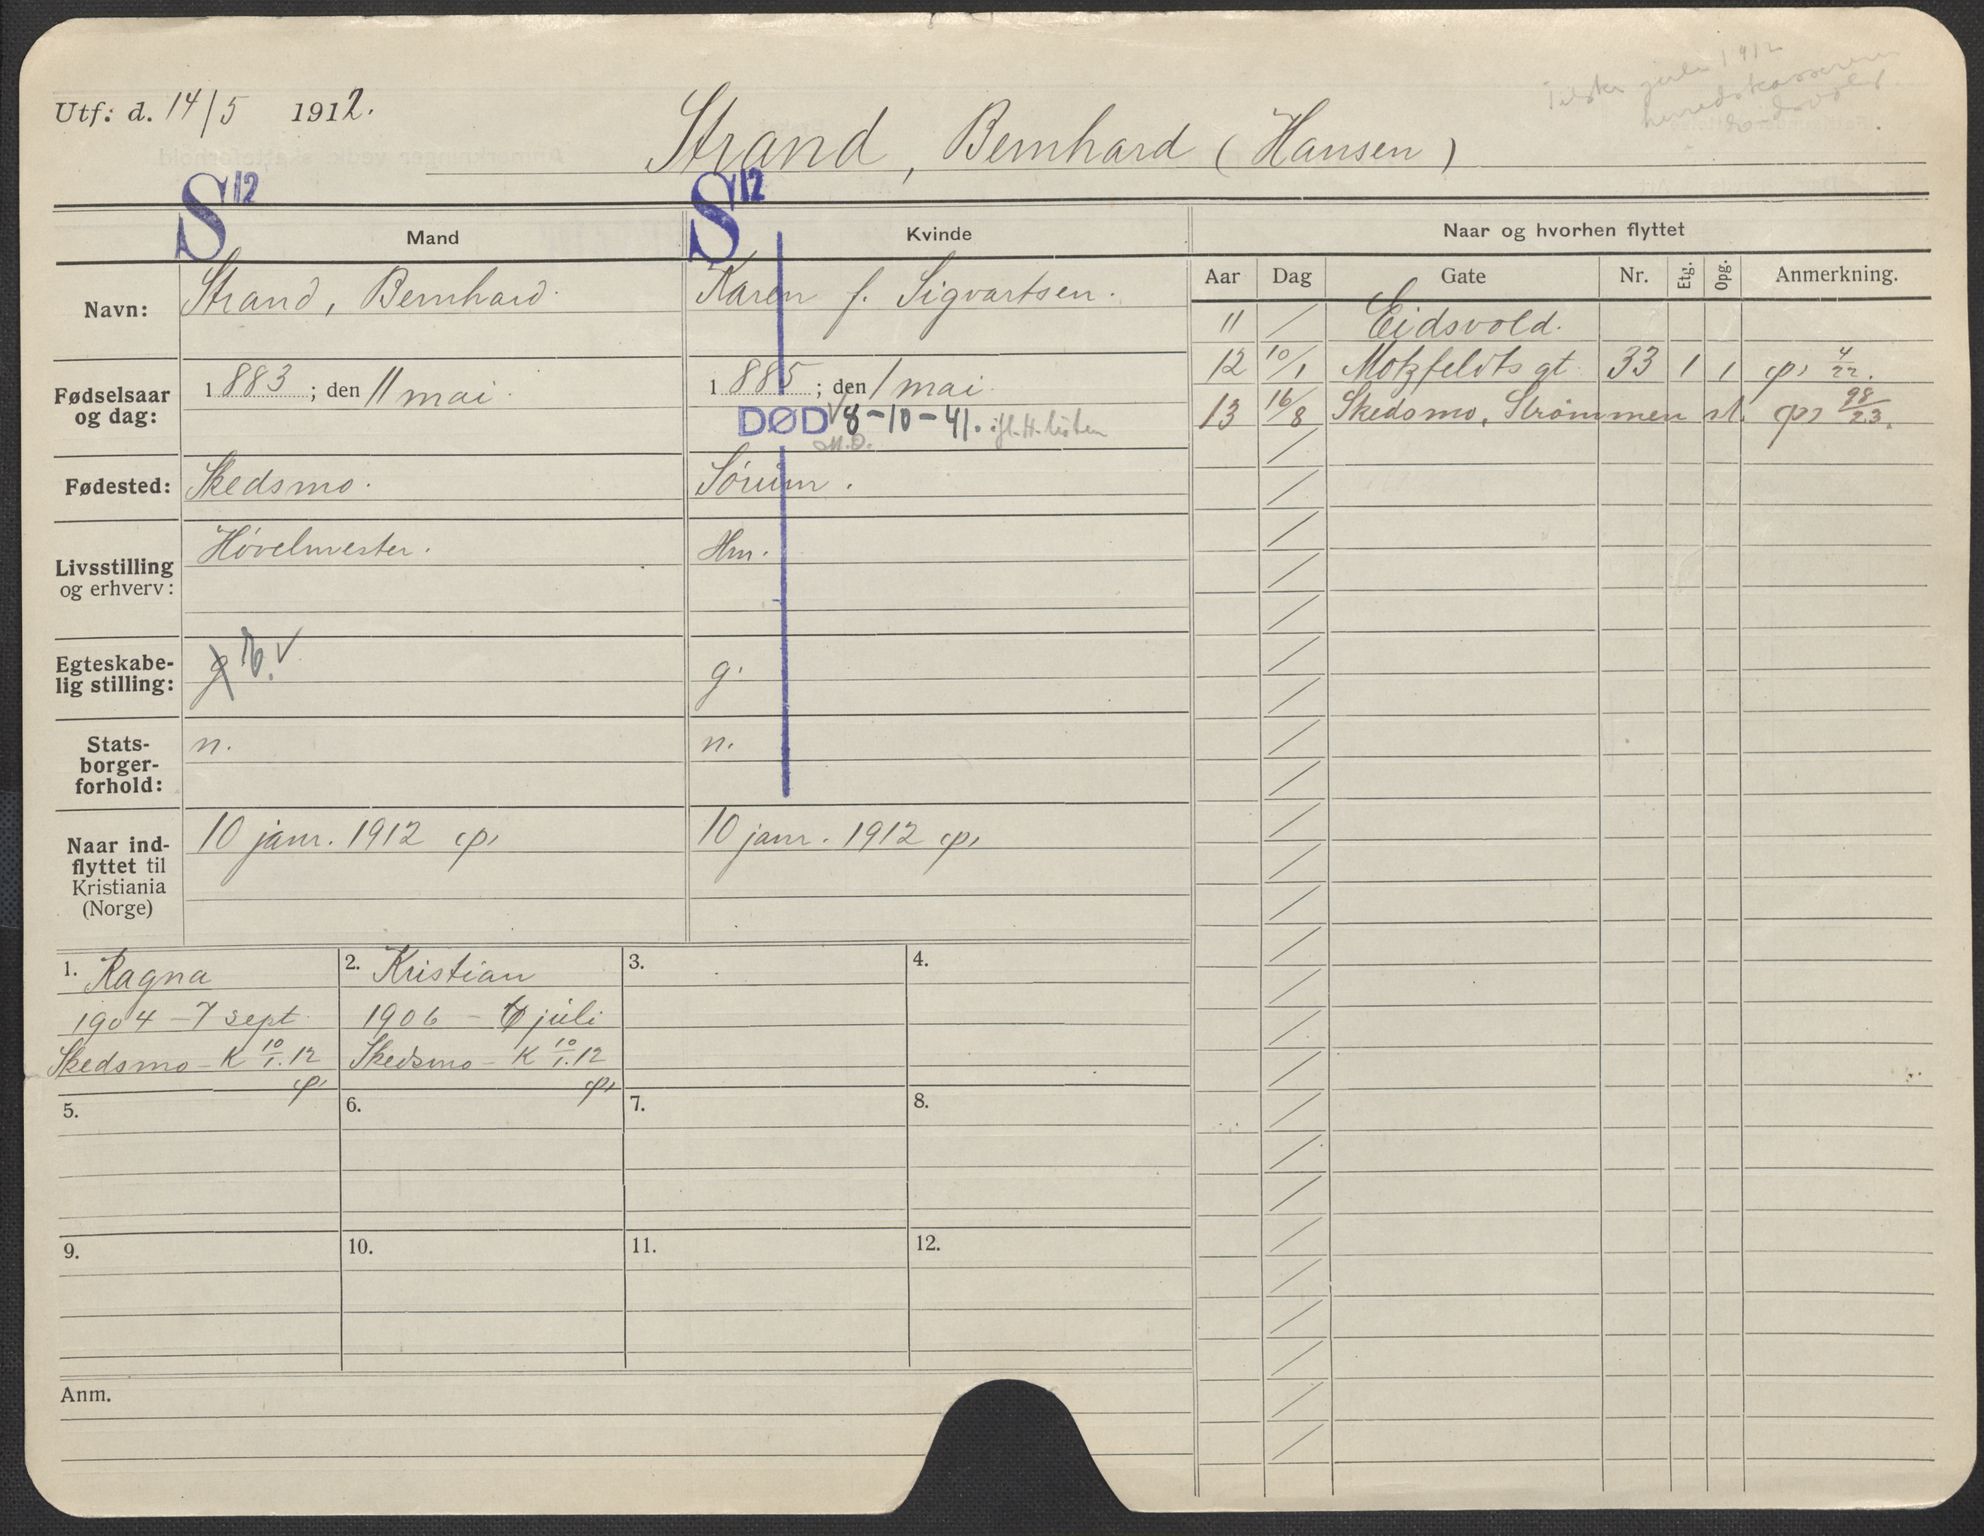 Utf: d. 14/5 1912.
Strand, Bernhard (Hansen)
juli 1912
S 12
S 12
Mand
Kvinde
Naar og hvorhen flyttet
Aar Dag Gate Nr. Etg. Opg. Anmerkning.
Navn:
Strand, Bernhard.
Karen f. Sigvartsen.
11 / Eidsvold.
12 10/1 Motzfeldts gt. 33 1 1 φ, 4/22.
13 16/8 Skedsmo, Strømmen st. φ, 98/23.
Fødselsaar og dag:
1883; den 11 mai.
1885; den 1 mai.
DØD √8-10-41. ifl. H. listen
M.D.
Fødested:
Skedsmo.
Sørum.
Livsstilling og erhverv:
Høvelmester.
Hm.
Egteskabe-
lig stilling:
g E. √
g.
Stats-
borger-
forhold:
n.
n.
Naar ind-
flyttet til
Kristiania
(Norge)
10 janr. 1912 φ,
10 janr. 1912 φ,
1. Ragna
1904 - 7 sept.
Skedsmo - K 10/1.12
φ,
2. Kristian
1906 - 6 juli
Skedsmo - K 10/1.12
φ,
3.
4.
5.
6.
7.
8.
9.
10.
11.
12.
Anm.